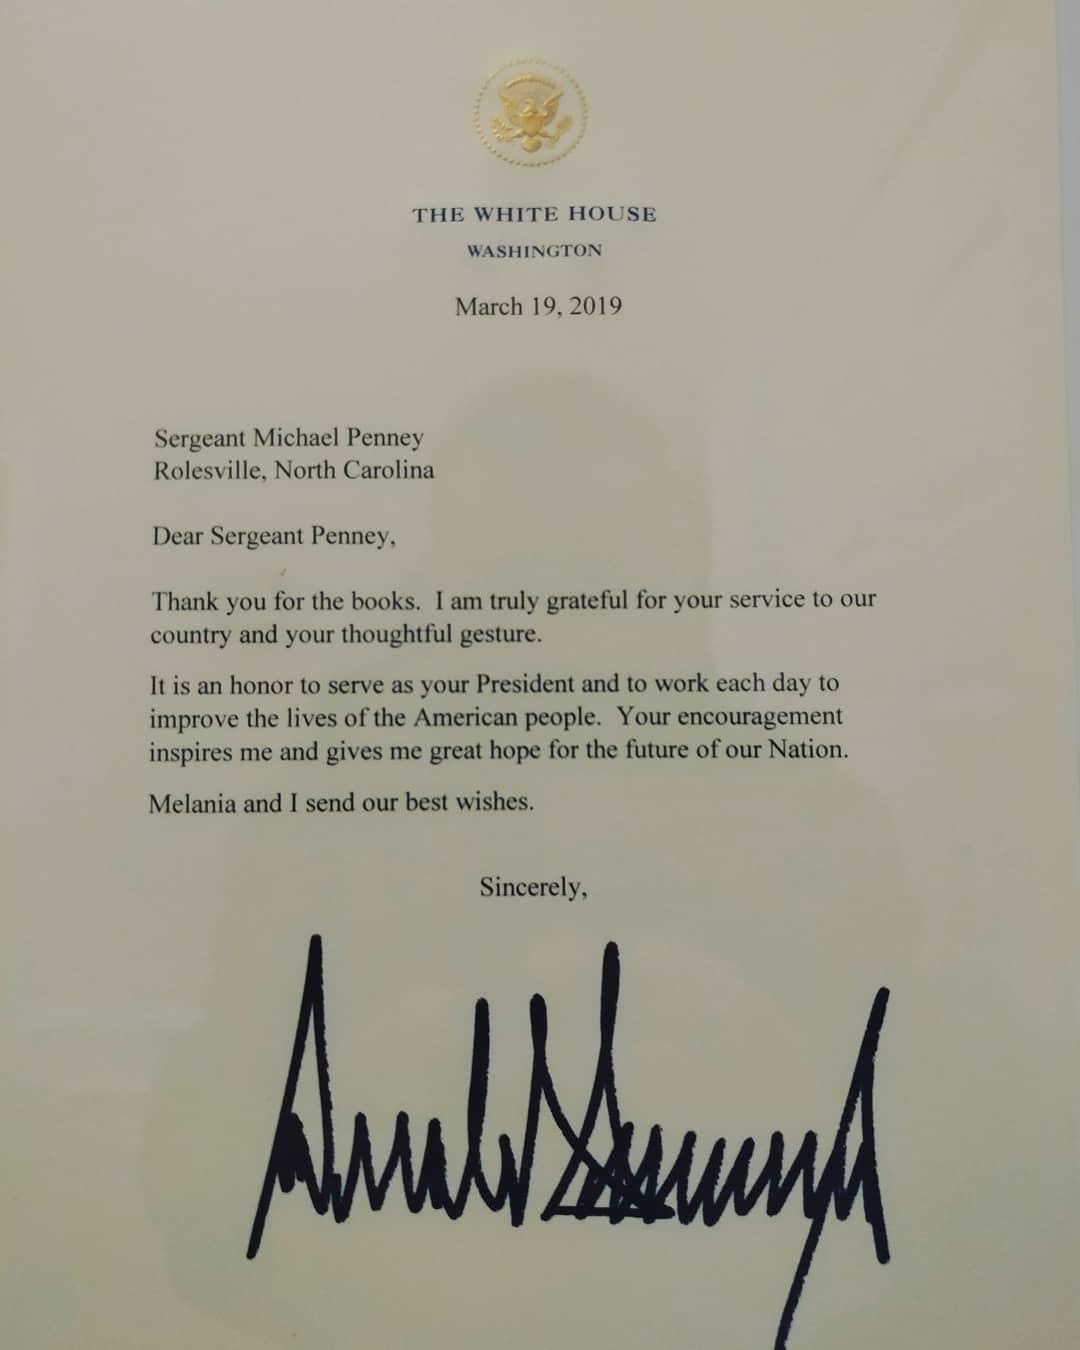 THE WHITE HOUSE
WASHINGTON
March 19, 2019
Sergeant Michael Penney
Rolesville, North Carolina
Dear Sergeant Penney,
Thank you for the books.  I am truly grateful for your service to our
country and your thoughtful gesture.
It is an honor to serve as your President and to work each day to
improve the lives of the American people.  Your encouragement
inspires me and gives me great hope for the future of our Nation.
Melania and I send our best wishes.
Sincerely,